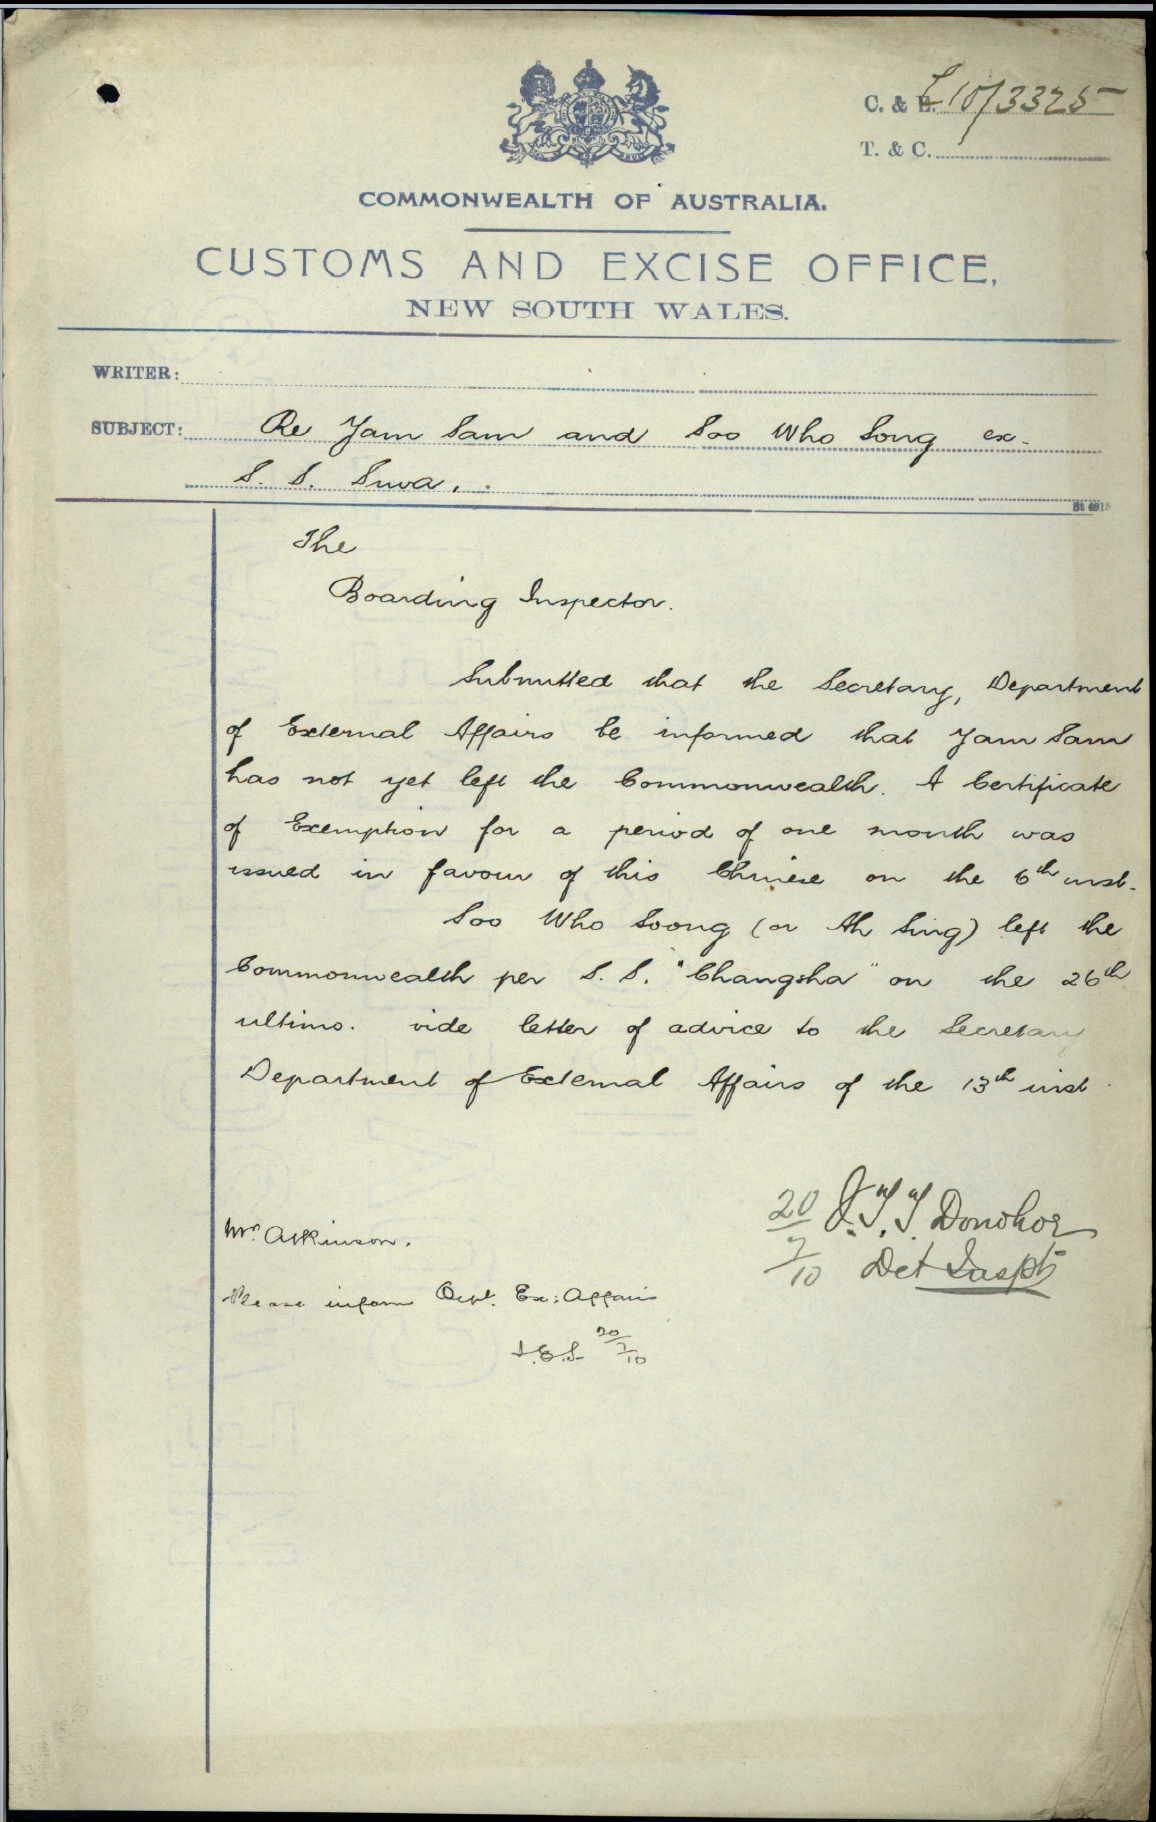 C. & E. L 10/3325
T. & C.
COMMONWEALTH OF AUSTRALIA.
CUSTOMS AND EXCISE OFFICE,
NEW SOUTH WALES.
WRITER:
SUBJECT: Re Yam Sam and Soo Who Song ex.
S. S. Suva.
The
Boarding Inspector.
Submitted that the Secretary, Department
of External Affairs be informed that Yam Sam
has not yet left the Commonwealth. A Certificate
of Exemption for a period of one month was
issued in favour of this Chinese on the 6th inst.
Soo Who Soong (or Ah Sing) left the
Commonwealth per S. S. "Changsha" on the 26th
ultimo. vide letter of advice to the Secretary
Department of External Affairs of the 13th inst.
20/7/10 J.T.T. Donohoe
Det Inspt
Mr. Atkinson.
Please inform Dept. Ex: Affairs
20/7/10